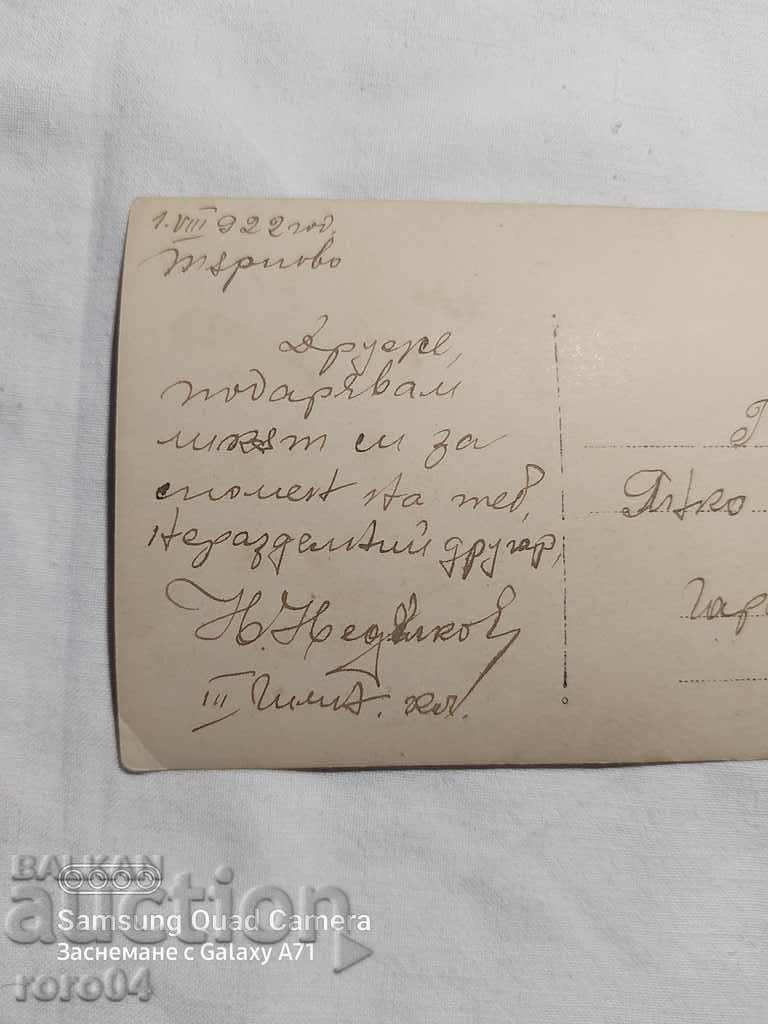 1. VIII 922 год.
Търново
Друже,
подарявам
ликът си за
спомен на теб,
неразделний другар,
Н. Недѣлковъ
III Гимн. кл.
Г
Пѣтко
Гар
BALKAN
auction
roro04
Samsung Quad Camera
Заснемане с Galaxy A71